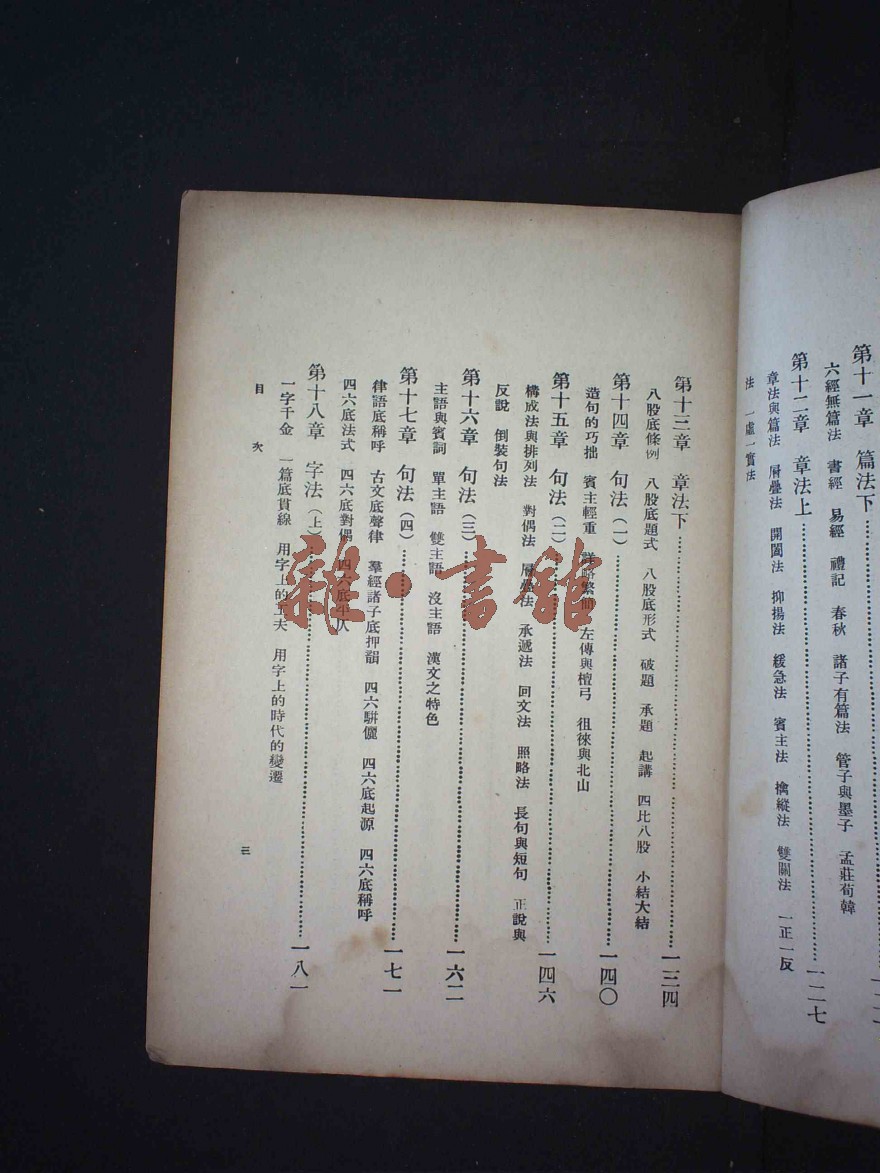 第十一章　篇法下
六經無篇法　書經　易經　禮記　春秋　諸子有篇法　管子與墨子　孟莊荀韓
第十二章　章法上……一二七
章法與篇法　層疊法　開闔法　抑揚法　緩急法　賓主法　擒縱法　雙關法　一正一反
法　一虛一實法
第十三章　章法下……一三四
八股底條例　八股底題式　八股底形式　破題　承題　起講　四比八股　小結大結
第十四章　句法（一）……一四〇
造句的巧拙　賓主輕重　詳略繁簡　左傳與檀弓　徂徠與北山
第十五章　句法（二）……一四六
構成法與排列法　對偶法　層疊法　承遞法　回文法　照略法　長句與短句　正說與
反說　倒裝句法
第十六章　句法（三）……一六二
主語與賓詞　單主語　雙主語　沒主語　漢文之特色
第十七章　句法（四）……一七一
律語底稱呼　古文底聲律　羣經諸子底押韻　四六駢儷　四六底起源　四六底稱呼
四六底法式　四六底對偶　四六底平仄
第十八章　字法（上）……一八一
一字千金　一篇底貫線　用字上的工夫　用字上的時代的變遷
目次
三
雜·書館